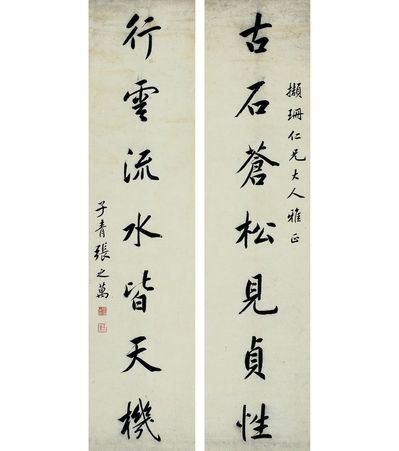 古石蒼松見貞性
擷珊仁兄大人雅正
行雲流水皆天機
子青張之萬